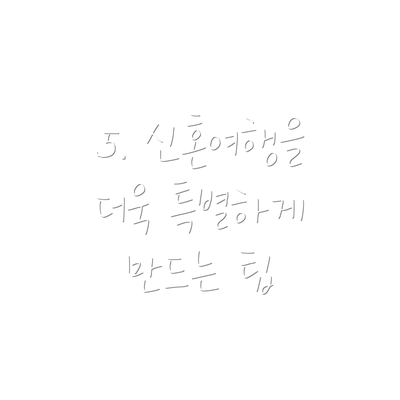 5. 신혼여행을
더욱 특별하게
만드는 팁